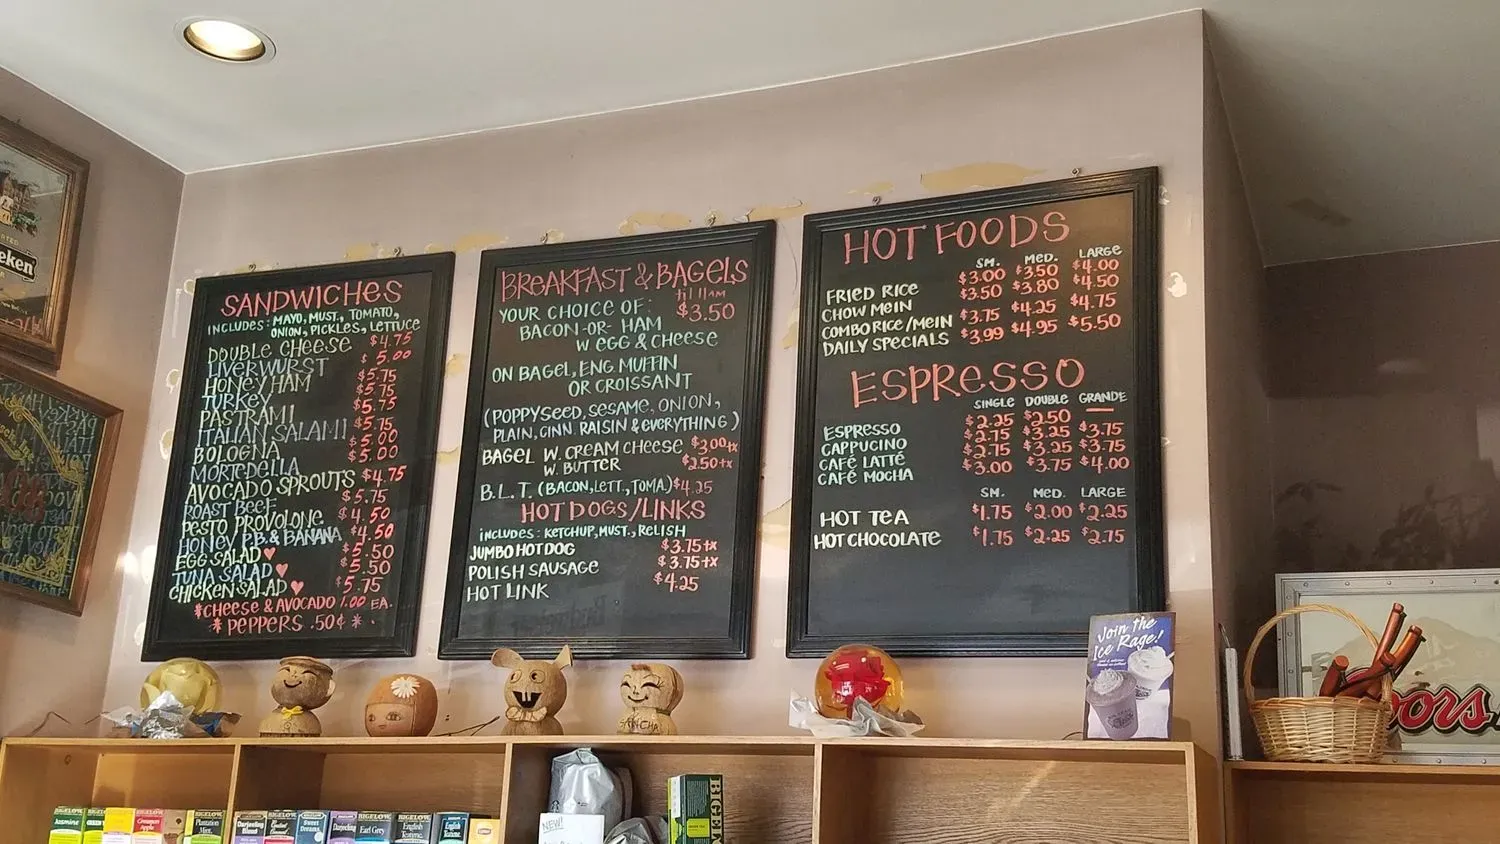 SANDWICHES
INCLUDES: MAYO, MUST., TOMATO,
ONION, PICKLES, LETTUCE
DOUBLE CHEESE $4.75
LIVERWURST $5.00
HONEY HAM $5.75
TURKEY $5.75
PASTRAMI $5.75
ITALIAN SALAMI $5.75
BOLOGNA $5.00
MORTEDELLA $5.00
AVOCADO SPROUTS $4.75
ROAST BEEF $5.75
PESTO PROVOLONE $4.50
HONEY P.B. & BANANA $4.50
EGG SALAD ♥ $5.50
TUNA SALAD ♥ $5.50
CHICKEN SALAD ♥ $5.75
*CHEESE & AVOCADO 1.00 EA.
* PEPPERS .50¢ *
BREAKFAST & BAGELS
til 11am
YOUR CHOICE OF: $3.50
BACON -OR- HAM
W EGG & CHEESE
ON BAGEL, ENG MUFFIN
OR CROISSANT
(POPPYSEED, SESAME, ONION,
PLAIN, CINN. RAISIN & EVERYTHING)
BAGEL W. CREAM CHEESE $3.00+x
W. BUTTER $2.50+x
B.L.T. (BACON, LETT., TOMA.) $4.25
HOT DOGS/LINKS
INCLUDES: KETCHUP, MUST., RELISH
JUMBO HOT DOG $3.75+x
POLISH SAUSAGE $3.75+x
HOT LINK $4.25
HOT FOODS
SM. MED. LARGE
FRIED RICE $3.00 $3.50 $4.00
CHOW MEIN $3.50 $3.80 $4.50
COMBO RICE/MEIN $3.75 $4.25 $4.75
DAILY SPECIALS $3.99 $4.95 $5.50
ESPRESSO
SINGLE DOUBLE GRANDE
ESPRESSO $2.25 $2.50 —
CAPPUCINO $2.75 $3.25 $3.75
CAFÉ LATTÉ $2.75 $3.25 $3.75
CAFÉ MOCHA $3.00 $3.75 $4.00
SM. MED. LARGE
HOT TEA $1.75 $2.00 $2.25
HOT CHOCOLATE $1.75 $2.25 $2.75
Join the
Ice Rage!
eken
Coors
SANCHA
Jasmine
GREEN
Cinnamon
Apple
BIGELOW
Plantation
Mint
BIGELOW
Darjeeling
Blend
BIGELOW
BIGELOW
Sweet
Dreams
Darjeeling
BIGELOW
Earl Grey
BIGELOW
English
Teatime
English
Teatime
NEW!
BIGELOW